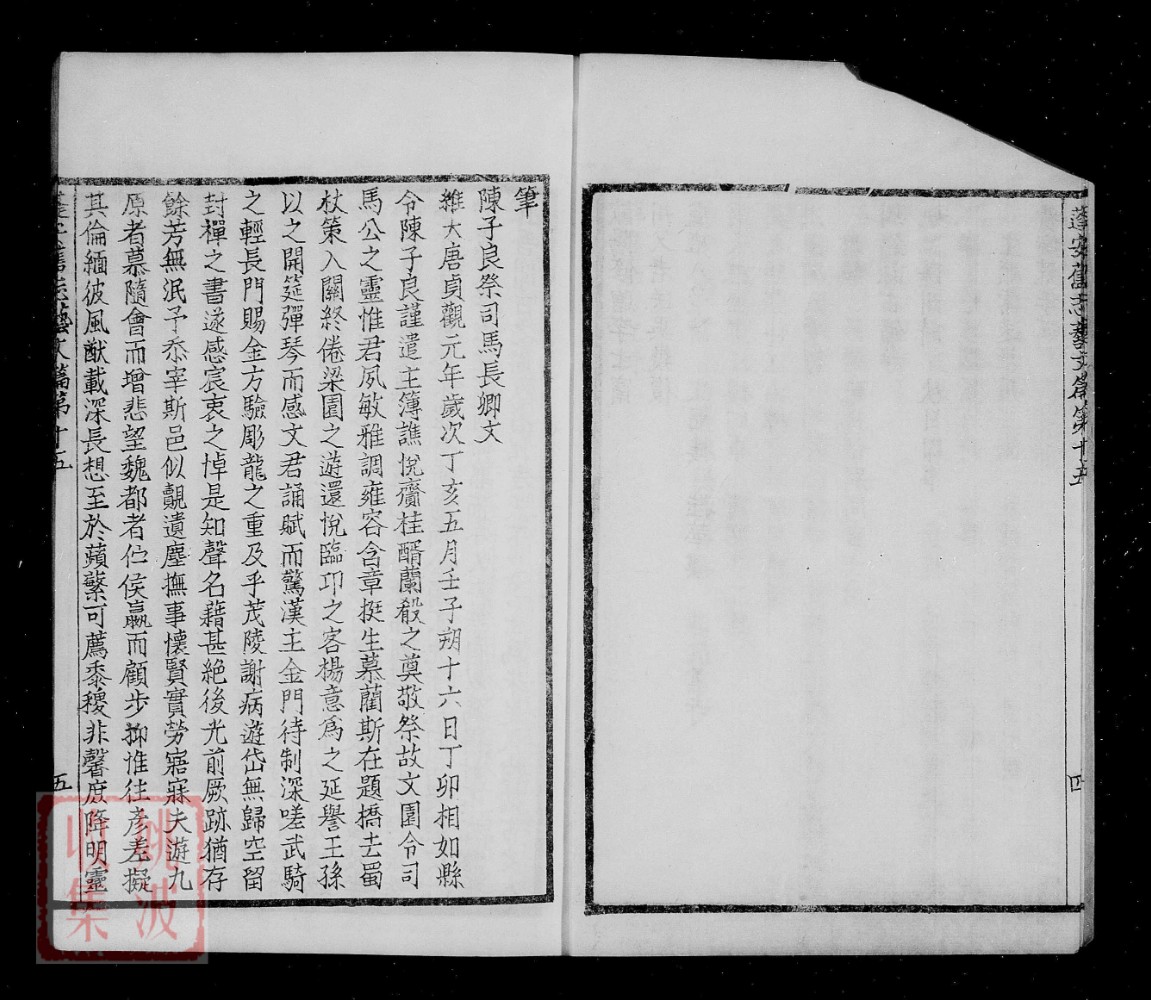 蓬安舊志藝文篇第十五
四
筆
陳子良祭司馬長卿文
維大唐貞觀元年歲次丁亥五月壬子朔十六日丁卯相如縣
令陳子良謹遣主簿譙悅齎桂醑蘭殽之奠敬祭故文園令司
馬公之靈惟君夙敏雅調雍容含章挺生慕藺斯在題橋去蜀
杖策入關終倦梁園之遊還悅臨卭之客楊意爲之延譽王孫
以之開筵彈琴而感文君誦賦而驚漢主金門待制深嗟武騎
之輕長門賜金方驗彫龍之重及乎茂陵謝病遊岱無歸空留
封禪之書遂感宸衷之悼是知聲名藉甚絶後光前厥跡猶存
餘芳無泯予忝宰斯邑似觀遺塵撫事懷賢實勞寤寐夫遊九
原者慕隨會而增悲望魏都者伫侯嬴而顧步抑惟往彥差擬
其倫緬彼風猷載深長想至於蘋蘩可薦黍稷非馨庶降明靈
蓬安舊志藝文篇第十五
五
姚波
收集